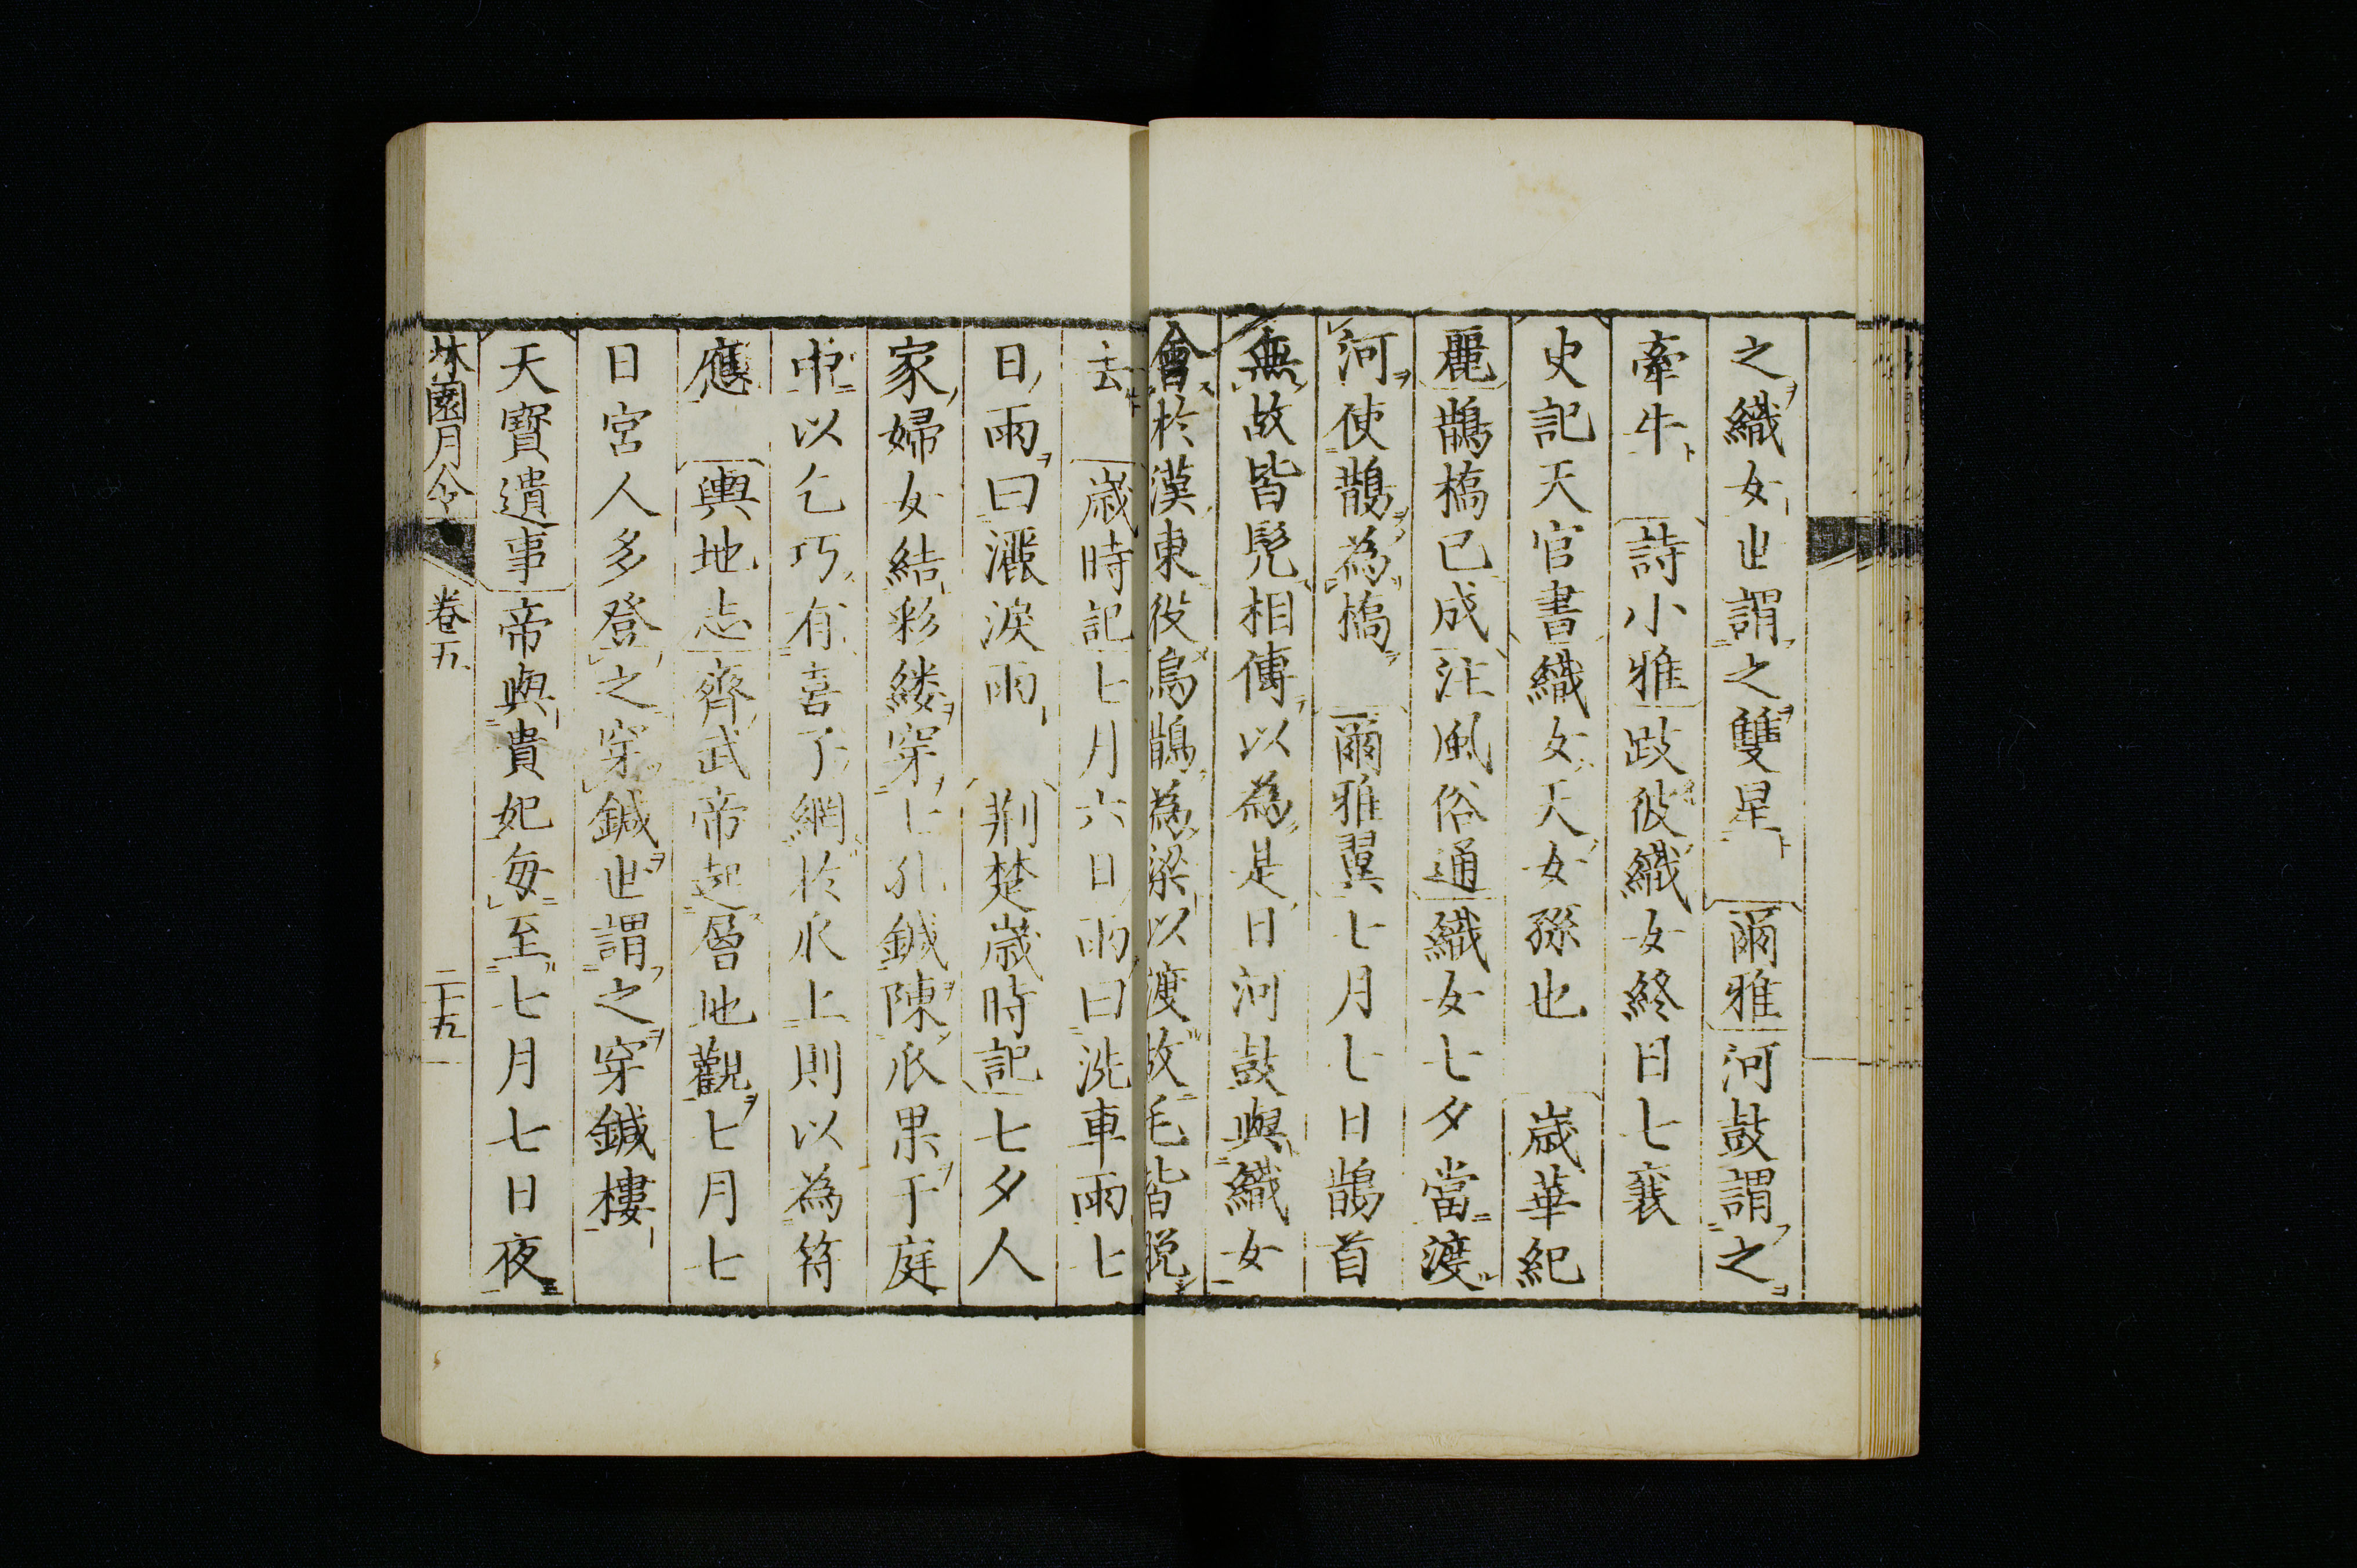 之織女世謂之雙星　爾雅河鼓謂之
牽牛　詩小雅跂彼織女終日七襄
史記天官書織女天女孫也　歲華紀
麗鵲橋已成注風俗通織女七夕當渡
河使鵲為橋　爾雅翼七月七日鵲首
無故皆髡相傳以為是日河鼓與織女
會於漢東役烏鵲為梁以渡故毛皆脫
去　歲時記七月六日雨曰洗車雨七
日雨曰灑淚雨　荆楚歲時記七夕人
家婦女結彩縷穿七孔鍼陳瓜果于庭
中以乞巧有喜子網於瓜上則以為符
應　輿地志齊武帝起層城觀七月七
日宮人多登之穿鍼世謂之穿鍼樓
天寶遺事帝與貴妃每至七月七日夜
林園月令　卷五　二十五